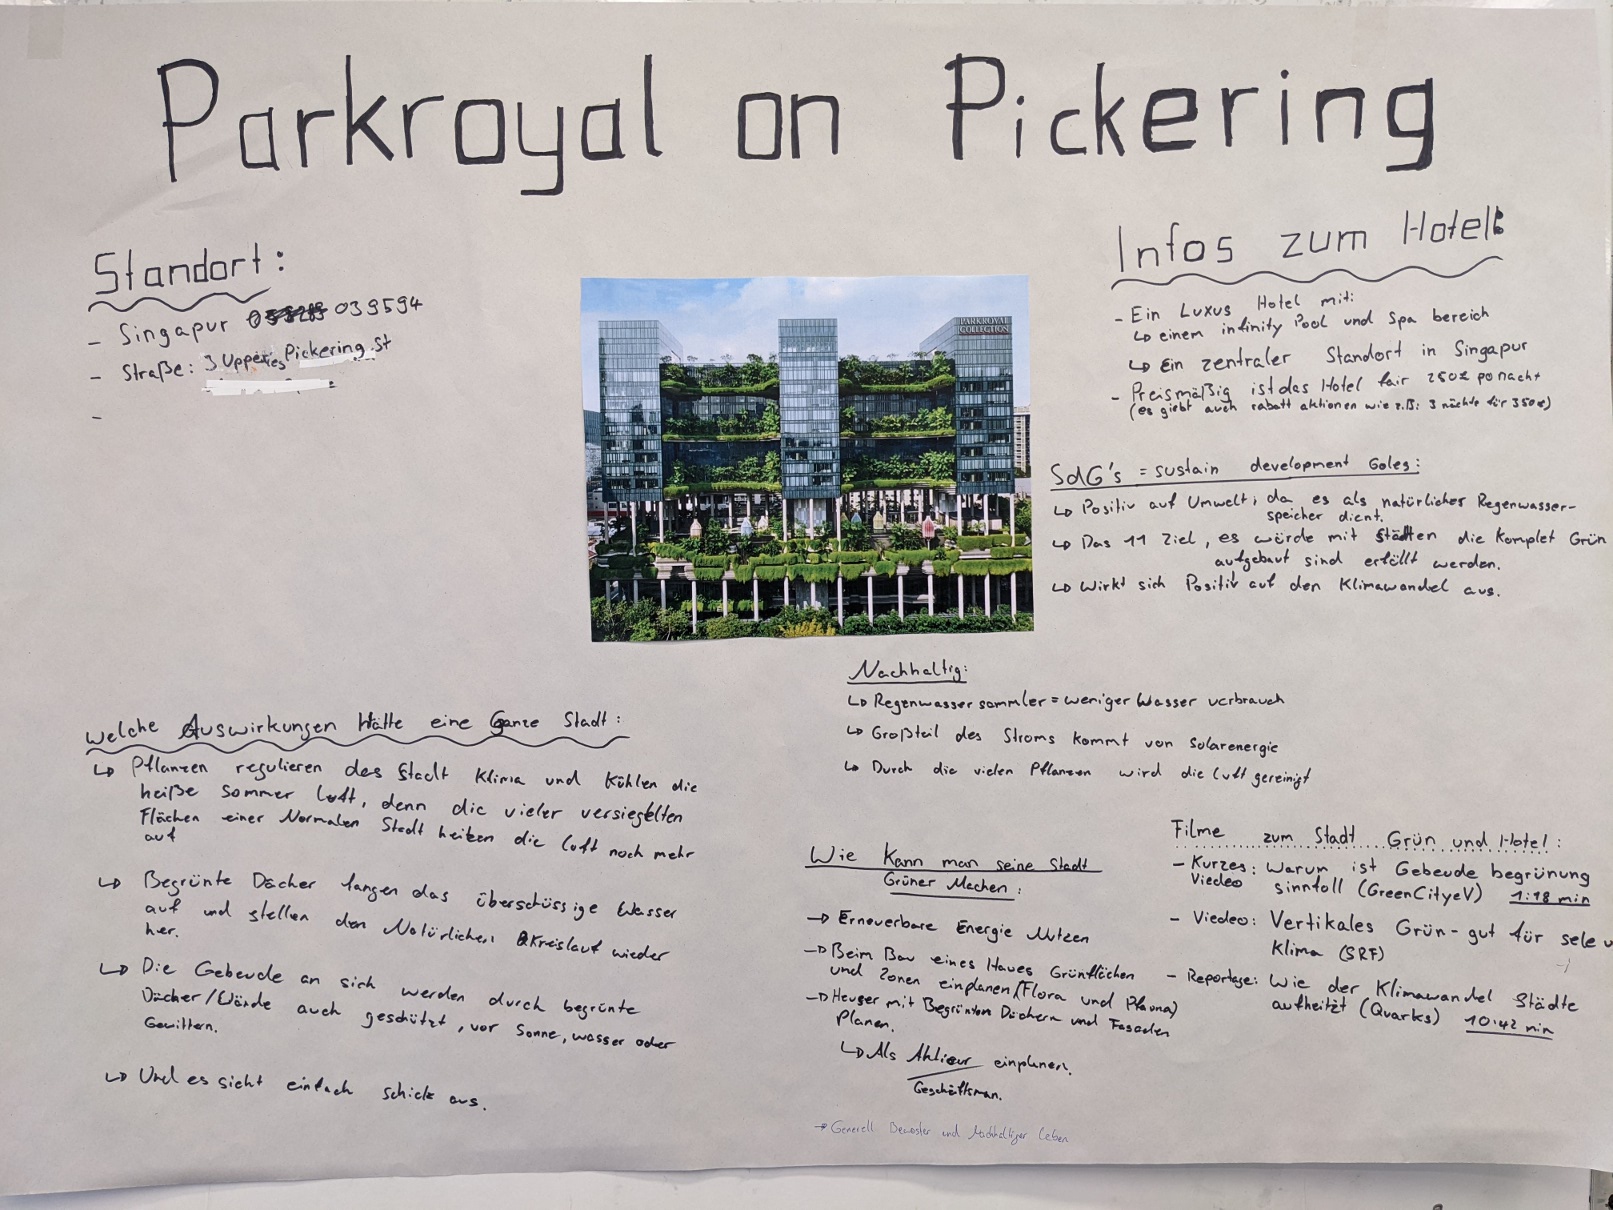 Parkroyal on Pickering
Standort:
- Singapur 039594
- Straße: 3 Upper Pickering St
-
PARKROYAL
COLLECTION
Infos zum Hotel:
- Ein Luxus Hotel mit:
↳ einem infinity Pool und Spa bereich
↳ Ein zentraler Standort in Singapur
- Preismäßig ist das Hotel fair 250€ po nacht
(es giebt auch rabatt aktionen wie z.B: 3 nächte für 350€)
SdG's = sustain development Goles:
↳ Positiv auf Umwelt, da es als natürliches Regenwasser-
speicher dient.
↳ Das 11 Ziel, es würde mit Städten die Komplet Grün
aufgebaut sind erfüllt werden.
↳ Wirkt sich Positiv auf den Klimawandel aus.
Nachhaltig:
↳ Regenwasser sammler = weniger Wasser verbrauch
↳ Großteil des Stroms kommt von Solarenergie
↳ Durch die vielen Pflanzen wird die Luft gereinigt
Welche Auswirkungen Hätte eine Ganze Stadt:
↳ Pflanzen regulieren das Stadt Klima und Kühlen die
heiße Sommer Luft, denn die vieler versiegelten
Flächen einer Normalen Stadt heitzen die Luft noch mehr
auf
↳ Begrünte Dächer fangen das überschüssige Wasser
auf und stellen den Natürlichen Kreislauf wieder
her.
↳ Die Gebeude an sich werden durch begrünte
Dächer/Wände auch geschützt, vor Sonne, wasser oder
Gewittern.
↳ Und es sieht einfach schick aus.
Wie Kann man seine Stadt
Grüner Machen:
→ Erneuerbare Energie Nutzen
→ Beim Bau eines Haues Grünflächen
und Zonen einplanen (Flora und Phauna)
→ Heuser mit Begrünten Dächern und Fasaden
Planen.
↳ Als einplanen.
Geschäftsman.
→ Generell Bewoster und Nachhaltiger Leben
Filme zum Stadt Grün und Hotel:
- Kurzes: Warum ist Gebeude begrünung
Viedeo sinnfoll (GreenCityeV) 1:18 min
- Viedeo: Vertikales Grün - gut für sele u
Klima (SRF)
- Reportage: Wie der Klimawandel Städte
aufheitzt (Quarks) 10:42 min